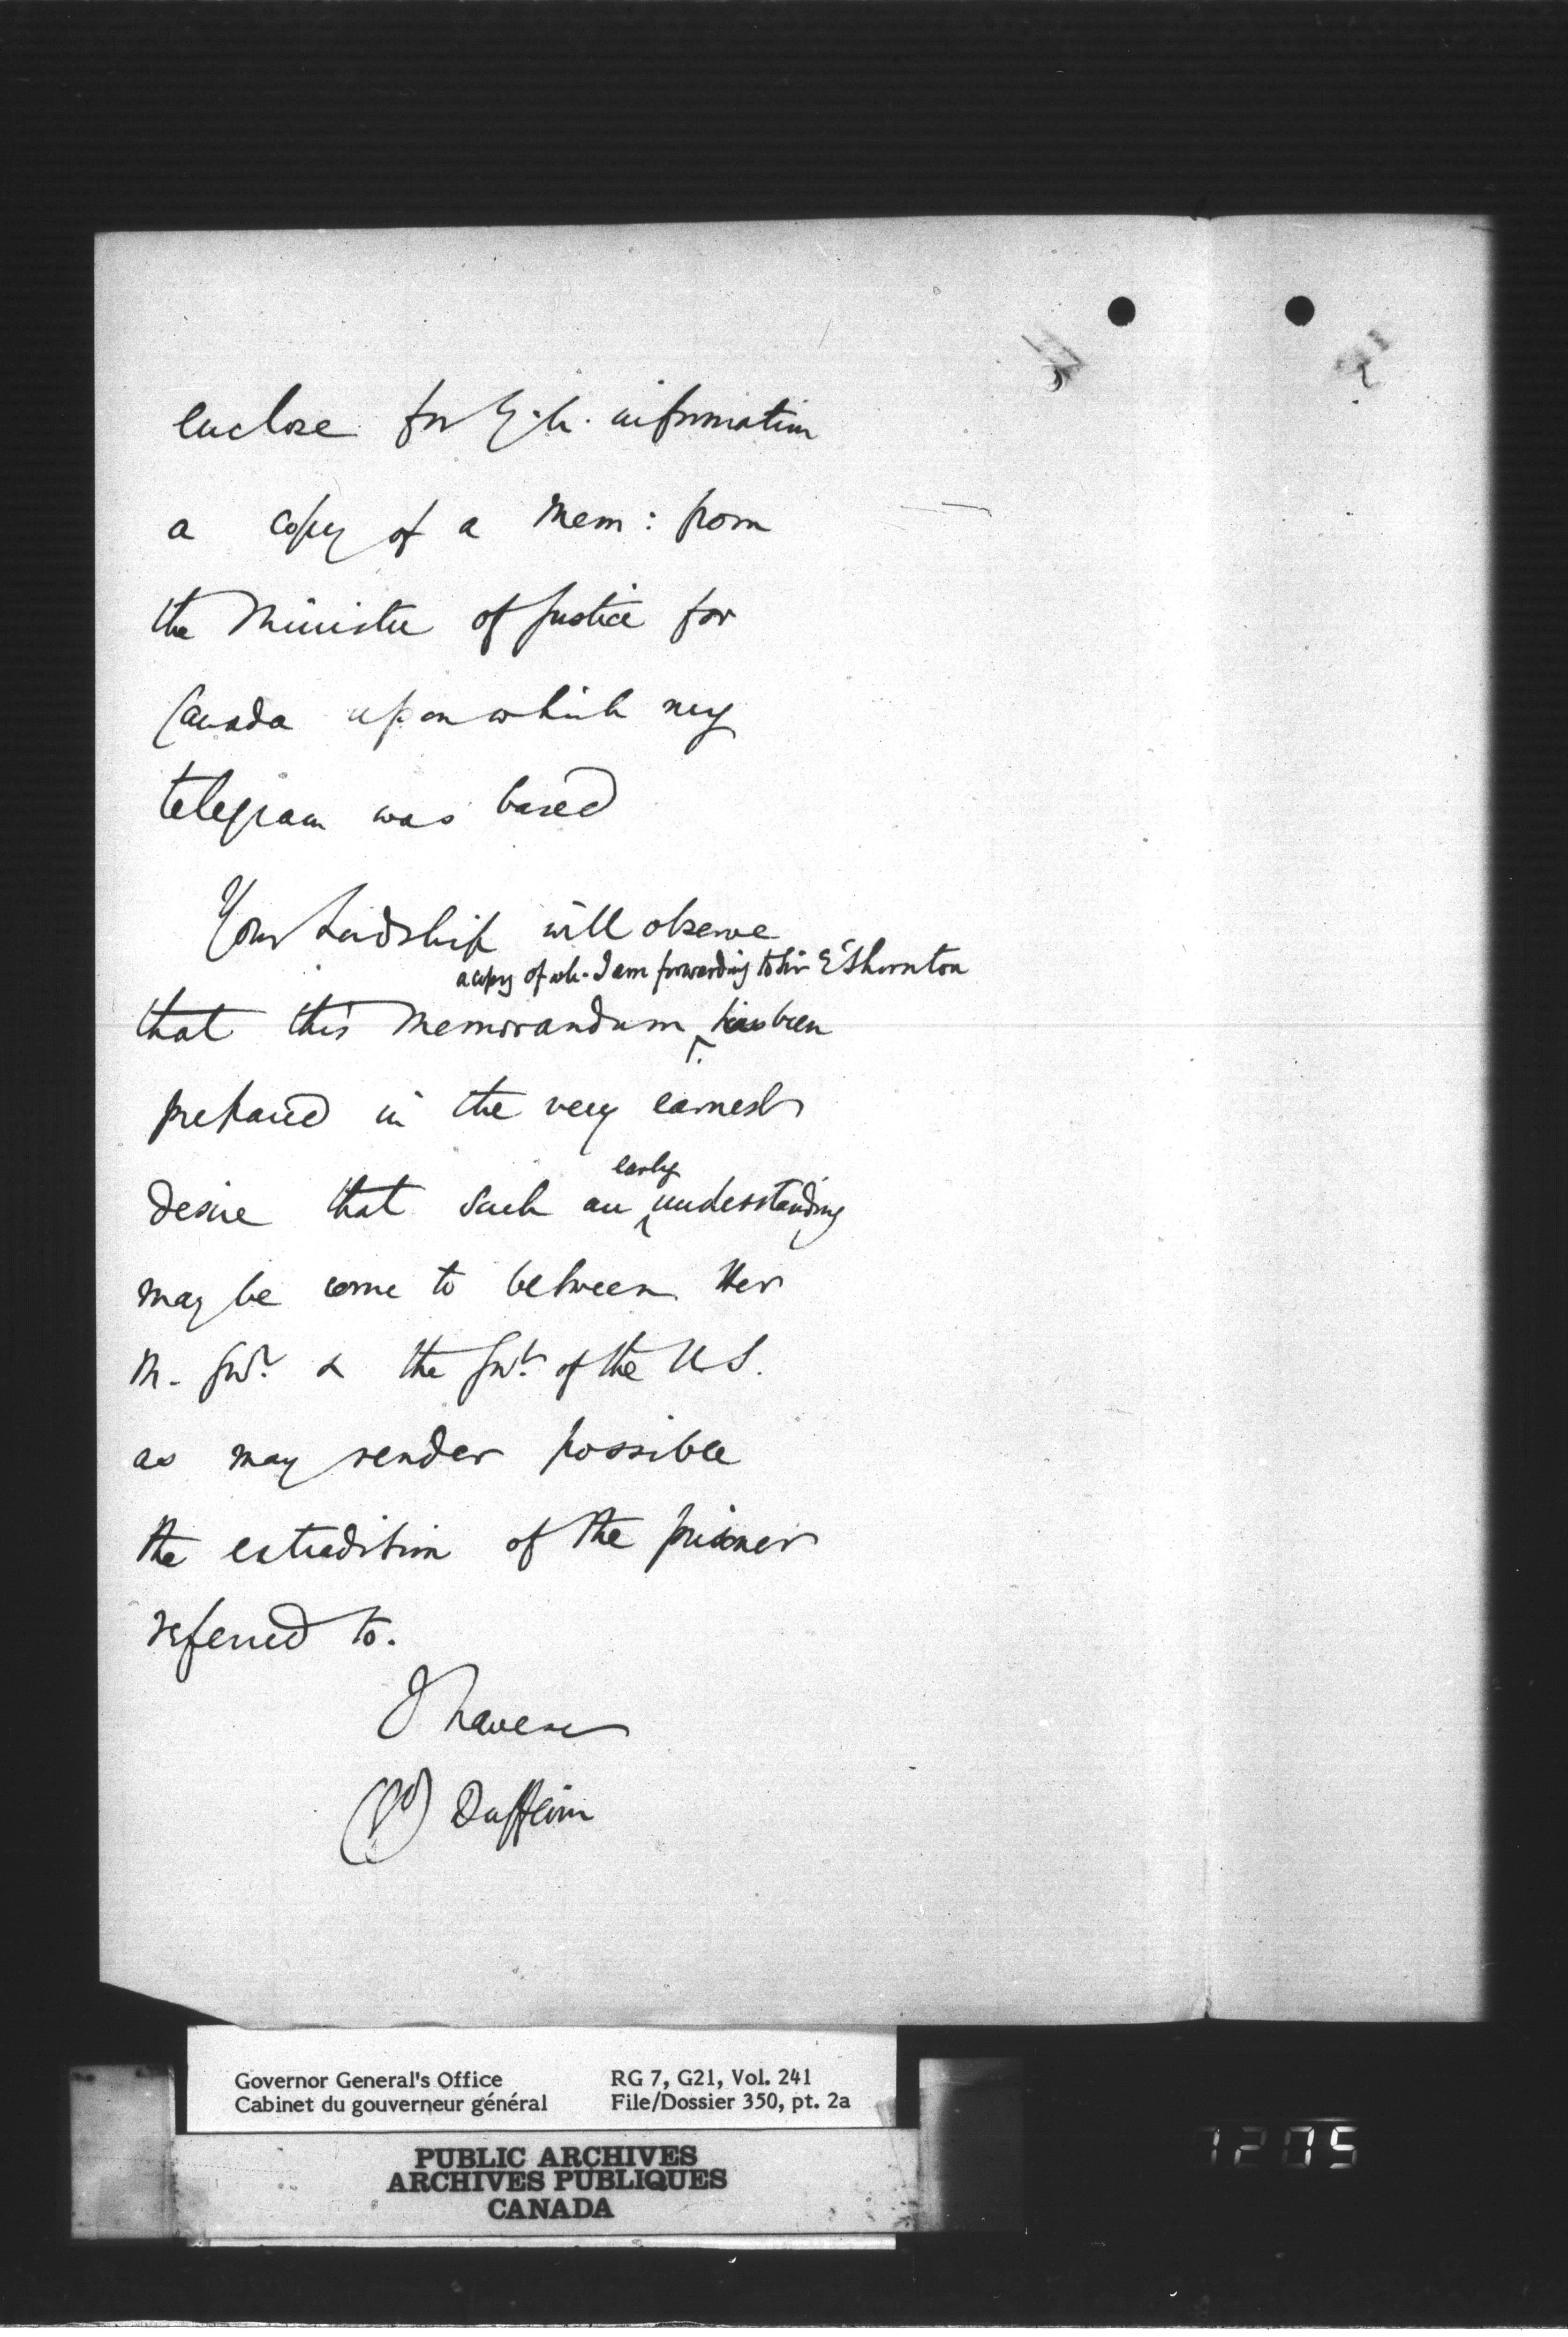 enclose for Y.L. information
a copy of a Mem: from
the Minister of Justice for
Canada upon which my
telegram was based
Your Lordship will observe
a copy of wh. I am forwarding to Sir E Thornton
that this Memorandum has been
prepared in the very earnest
early
desire that such an understanding
may be come to between Her
M. Govt. & the Govt. of the U S.
as may render possible
the extradition of the prisoner
referred to.
I have &c
Dufferin
Governor General's Office RG 7, G21, Vol. 241
Cabinet du gouverneur général File/Dossier 350, pt. 2a
PUBLIC ARCHIVES
ARCHIVES PUBLIQUES
CANADA
1205